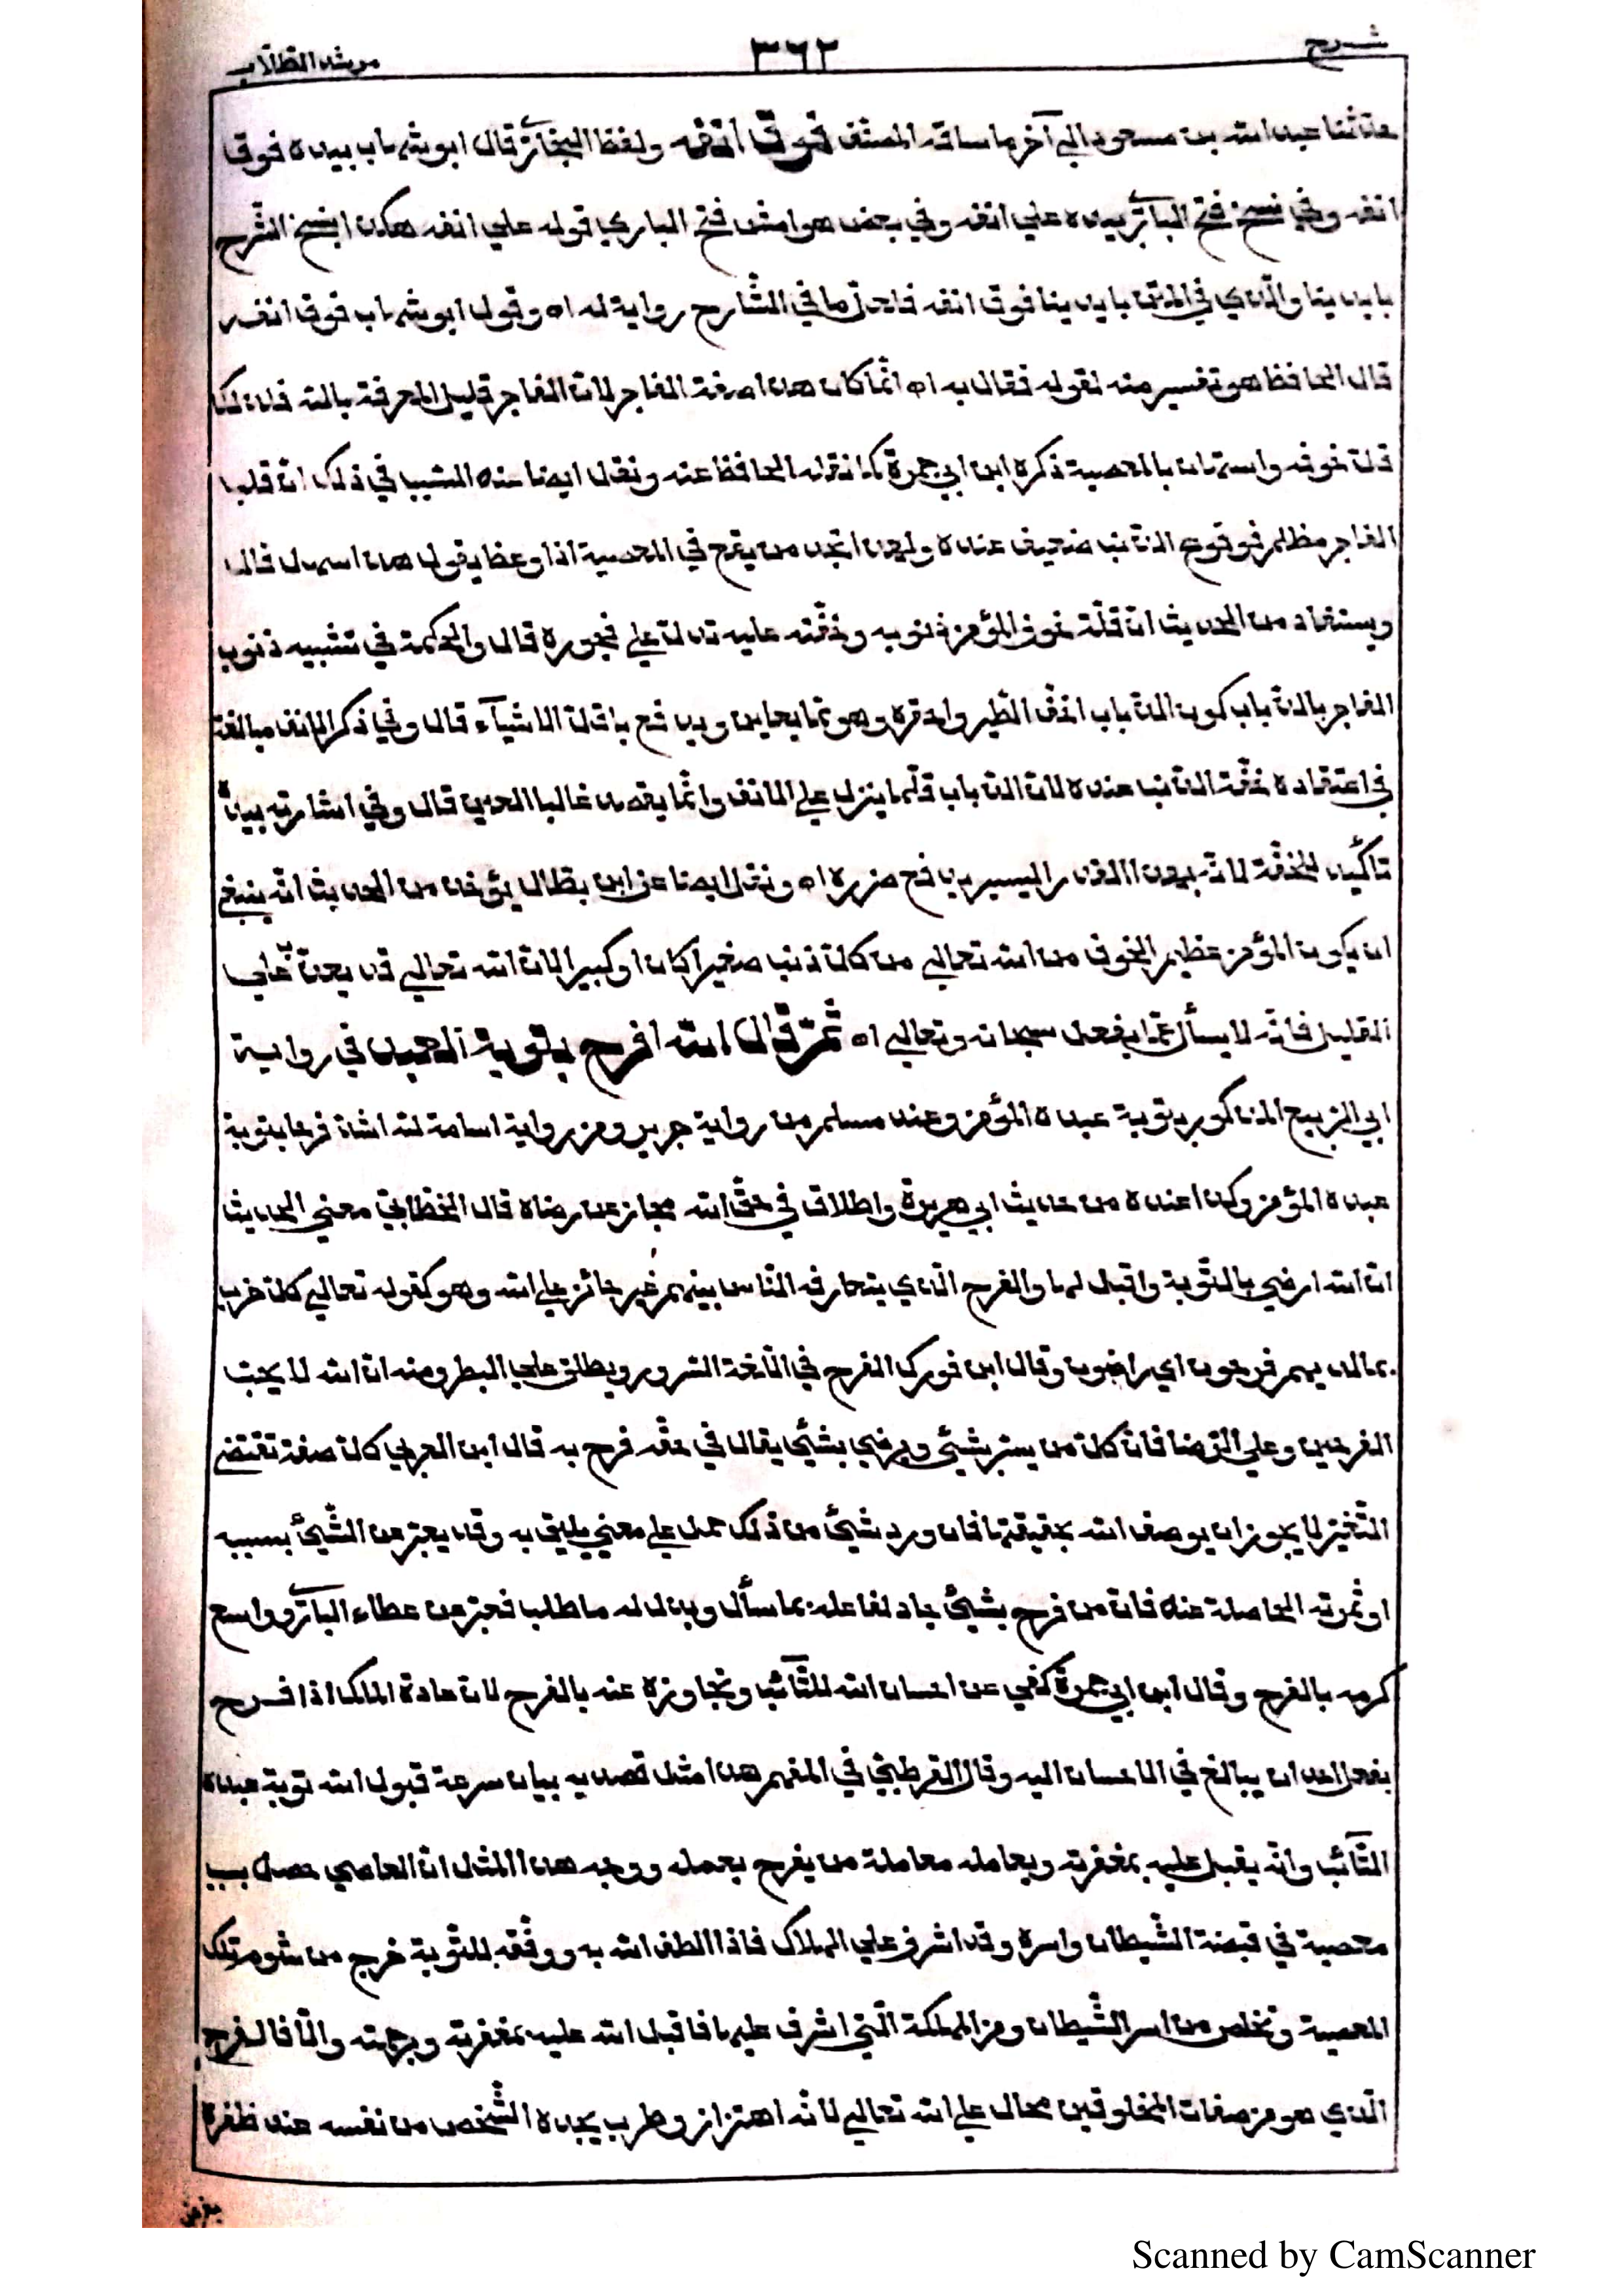 شرح
٣٦٢
مرشد الطلاب
حدثنا عبد الله بن مسعود الي آخر ما ساقه المصنف فوق انفه ولفظ البخاري قال ابو شهاب بيده فوق
انفه وفي نسخ فتح الباري بيده علي انفه وفي بعض هوامش فتح الباري قوله علي انفه هكذا بنسخ الشرح
بايدينا والذي في المتن بايدينا فوق انفه فلعل ما في الشارح رواية له اه وقول ابو شهاب فوق انفه
قال الحافظ هو تفسير منه لقوله فقال به اه انما كان هذا صفة الفاجر لان الفاجر قليل المعرفة بالله فلذلك
قل خوفه واستهان بالمعصية ذكره ابن ابي جمرة كما نقله الحافظ عنه ونقل ايضا عنه السبب في ذلك ان قلب
الفاجر مظلم فوقوع الذنب ضعيف عنده ولهذا تجد من يقع في المعصية اذا وعظ يقول هذا سهل قال
ويستفاد من الحديث ان قلة خوف المؤمن ذنوبه وخفته عليه تدل علي فجوره قال والحكمة في تشبيه ذنوب
الفاجر بالذباب كون الذباب اخف الطير واحقره وهو مما يعاين ويدفع باقل الاشياء قال وفي ذكر الانف مبالغة
في اعتقاده خفة الذنب عنده لان الذباب قلما ينزل علي الانف وانما يقصد غالبا العين قال وفي اشارته بيده
تاكيد للخفة لانه بهذا القدر اليسير يدفع ضرره اه ونقل ايضا عن ابن بطال يؤخذ من الحديث انه ينبغي
ان يكون المؤمن عظيم الخوف من الله تعالي من كل ذنب صغيرا كان او كبيرا لان الله تعالي قد يعذب علي
القليل فانه لا يسأل عما يفعل سبحانه وتعالي اه ثم قال لله افرح بتوبة العبد في رواية
ابي الربيع المذكور بتوبة عبده المؤمن وعند مسلم من رواية جرير ومن رواية اسامة لله اشد فرحا بتوبة
عبده المؤمن وكذا عنده من حديث ابي هريرة واطلاق في حق الله مجاز عن رضاه قال الخطابي معني الحديث
ان الله ارضي بالتوبة واقبل لها والفرح الذي يتعارفه الناس بينهم غير جائز علي الله وهو كقوله تعالي كل حزب
بما لديهم فرحون اي راضون وقال ابن فورك الفرح في اللغة السرور ويطلق علي البطر ومنه ان الله لا يحب
الفرحين وعلي الرضا فان كل من يسر بشيئ ويرضي بشيئ يقال في حقه فرح به قال ابن العربي كل صفة تقتضي
التغير لا يجوز ان يوصف الله بحقيقتها فان ورد شيئ من ذلك حمل علي معني يليق به وقد يعبر عن الشيئ بسببه
او ثمرته الحاصلة عنه فان من فرح بشيئ جاد لفاعله بما سأل وبذل له ما طلب فعبر عن عطاء الباري وواسع
كرمه بالفرح وقال ابن ابي جمرة كني عن احسان الله للتائب وتجاوزه عنه بالفرح لان عادة الملك اذا فرح
بفعل احد ان يبالغ في الاحسان اليه وقال القرطبي في المفهم هذا مثل قصد به بيان سرعة قبول الله توبة عبده
التائب وانه يقبل عليه بمغفرته ويعامله معاملة من يفرح بعمله ووجه هذا المثل ان العاصي حصل بسبب
معصية في قبضة الشيطان واسره وقد اشرف علي الهلاك فاذا الطف الله به ووفقه للتوبة خرج من شوم تلك
المعصية وتخلص من اسر الشيطان ومن المهلكة التي اشرف عليها فاقبل الله عليه بمغفرته وبرحمته والا فالفرح
الذي هو من صفات المخلوقين محال علي الله تعالي لانه اهتزاز وطرب يجده الشخص من نفسه عند ظفره
بغرض
Scanned by CamScanner